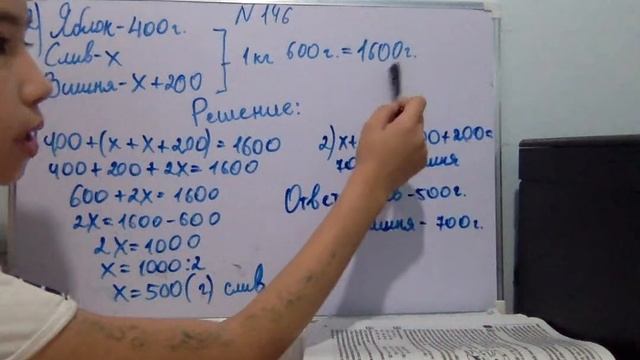 N 146
2) Яблок-400г.
Слив-х
Вишня-х+200
1кг 600г.=1600г.
Решение:
400+(х+х+200)=1600
400+200+2х=1600
600+2х=1600
2х=1600-600
2х=1000
х=1000:2
х=500(г) слив
2)х+ 00+200=
70
Ответ -500г.
вишня- 700г.